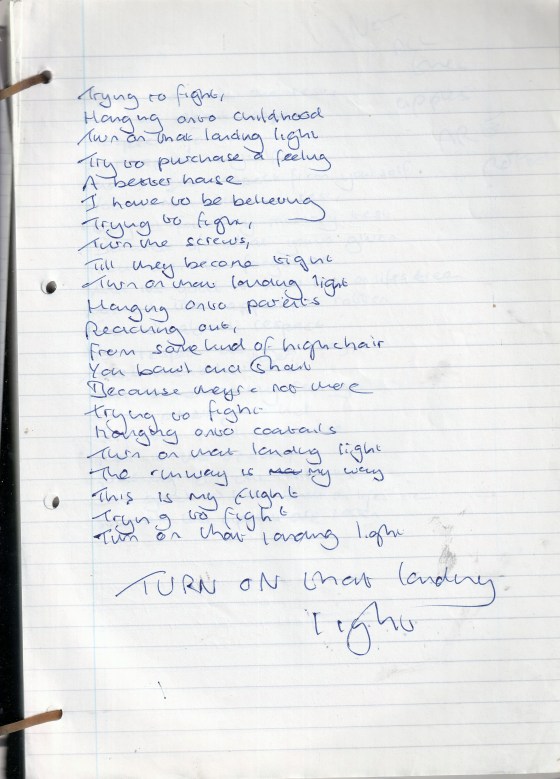 Trying to fight,
Hanging onto childhood
Turn on that landing light
Try to purchase a feeling
A better house
I have to be believing
Trying to fight,
Turn the screws,
Till they become tight
Turn on that landing light
Hanging onto parents
Reaching out,
From some kind of highchair
You bawl and shout
Because they're not there
Trying to fight
Hanging onto coattails
Turn on that landing light
The runway is my way
This is my flight
Trying to fight
Turn on that landing light
TURN ON that landing
light